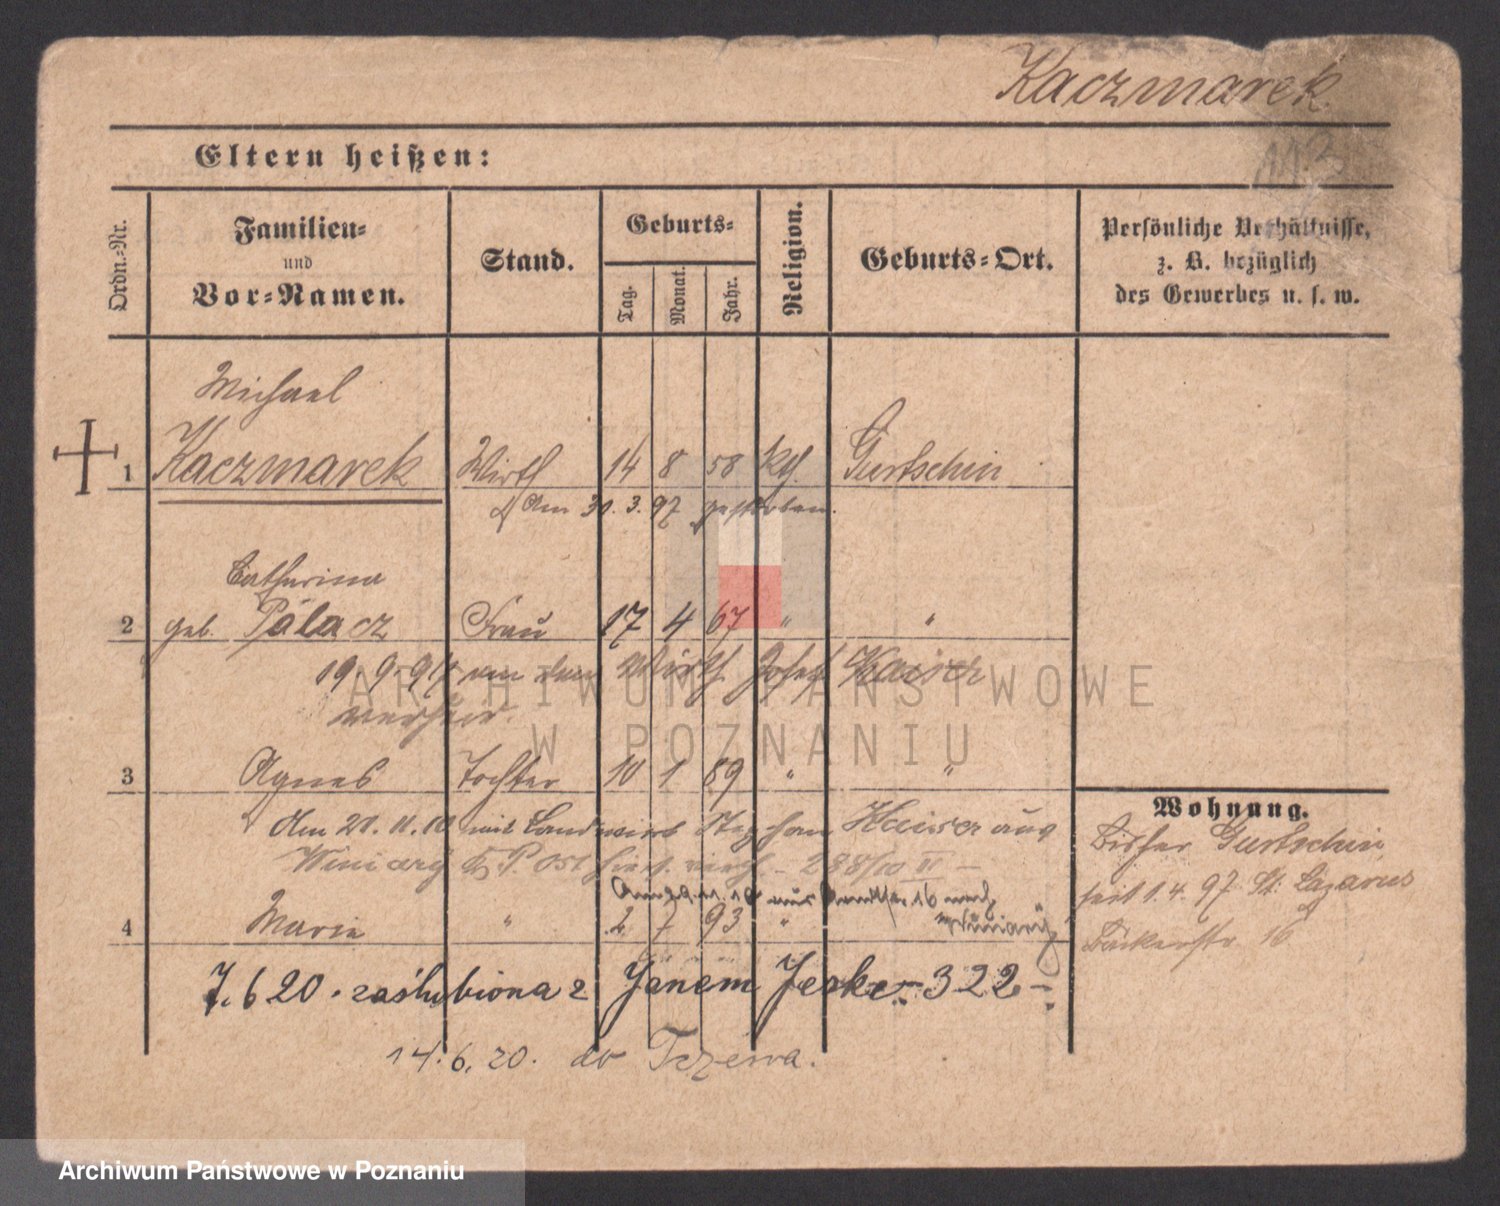 Kaczmarek.
113
Eltern heißen:
Ordn.-Nr.
Familien-
und
Vor-Namen.
Stand.
Geburts-
Tag.
Monat.
Jahr.
Religion.
Geburts-Ort.
Persönliche Verhältnisse,
z. B. bezüglich
des Gewerbes u. s. w.
Michael
1 Kaczmarek Wirth 14 8 58 kth. Gurtschin
Am 30. 3. 97 gestorben.
Catharina
2 geb. Palacz Frau 17 4 67 " "
19 9 97 mit dem Wirth Josef Kaiser
verheir.
3 Agnes Tochter 10 1 89 " "
Am 21. 11. 10 mit Landwirt Stephan Kaiser aus
Winiary Kr. P. Ost 288/10 II
16 nach
Winiary
4 Marie " 2 7 93 "
7. 6 20. zaślubiona z Janem Jeske - 322 -
14. 6. 20. do Tczewa.
Wohnung.
Bisher Gurtschin
seit 1. 4. 97 St. Lazarus
Bäckerstr 16
ARCHIWUM PAŃSTWOWE
W POZNANIU
Archiwum Państwowe w Poznaniu